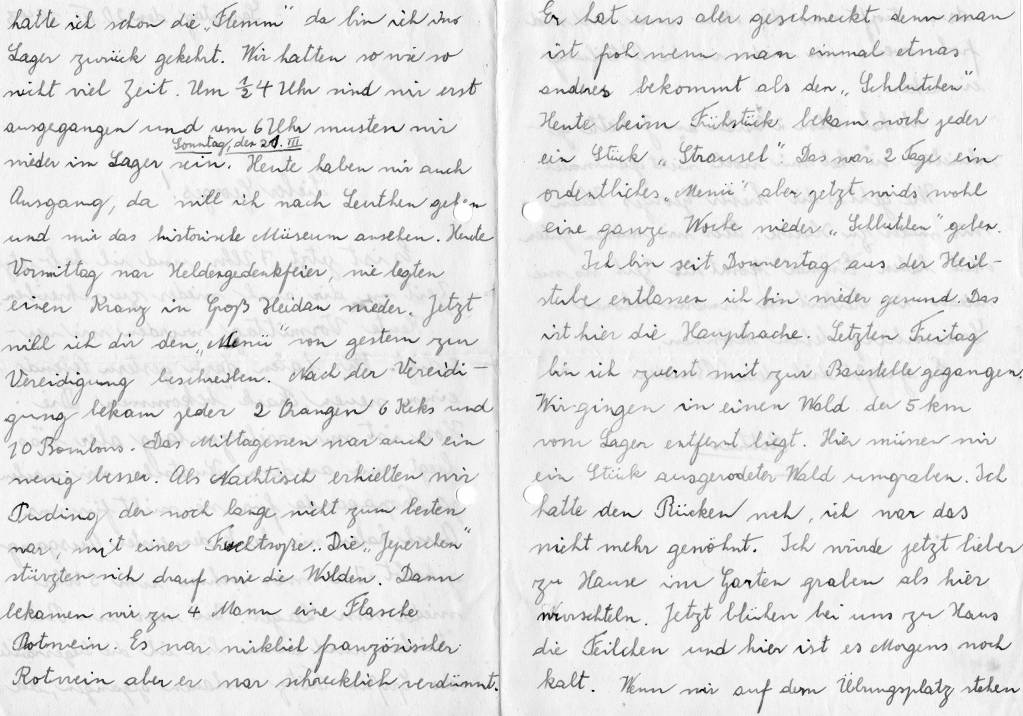 hatte ich schon die „Flemm" da bin ich ins
Lager zurück gekehrt. Wir hatten so wie so
nicht viel Zeit. Um ½ 4 Uhr sind wir erst
ausgegangen und um 6 Uhr musten wir
Sonntag, der 21. III
wieder im Lager sein. Heute haben wir auch
Ausgang, da will ich nach Leuthen gehen
und mir das historische Museum ansehen. Heute
Vormittag war Heldengedenkfeier, wie legten
einen Kranz in Groß Heidau nieder. Jetzt
will ich dir den „Menü" von gestern zur
Vereidigung beschreiben. Nach der Vereidi-
gung bekam jeder 2 Orangen 6 Keks und
10 Bombons. Das Mittagessen war auch ein
wenig besser. Als Nachtisch erhielten wir
Puding der noch lange nicht zum besten
war, mit einer Fruchtsoße. Die „Jeperchen"
stürzten sich drauf wie die Wilden. Dann
bekamen wir zu 4 Mann eine Flasche
Rotwein. Es war wirklich französischer
Rotwein aber er war schrecklich verdünnt.
Er hat uns aber geschmeckt denn man
ist froh wenn man einmal etwas
anderes bekommt als den „Schlutchen"
Heute beim Frühstück bekam noch jeder
ein Stück „Streusel". Das war 2 Tage ein
ordentliches „Menü" aber jetzt wirds wohl
eine ganze Woche wieder „Schlutchen" geben.
Ich bin seit Donnerstag aus der Heil-
stube entlassen ich bin wieder gesund. Das
ist hier die Hauptsache. Letzten Freitag
bin ich zuerst mit zur Baustelle gegangen.
Wir gingen in einen Wald der 5 km
vom Lager entfernt liegt. Hier müssen wir
ein Stück ausgerodeter Wald umgraben. Ich
hatte den Rücken weh, ich war das
nicht mehr gewöhnt. Ich würde jetzt lieber
zu Hause im Garten graben als hier
wurschteln. Jetzt blühen bei uns zu Haus
die Feilchen und hier ist es Morgens noch
kalt. Wenn wir auf dem Übungsplatz stehen